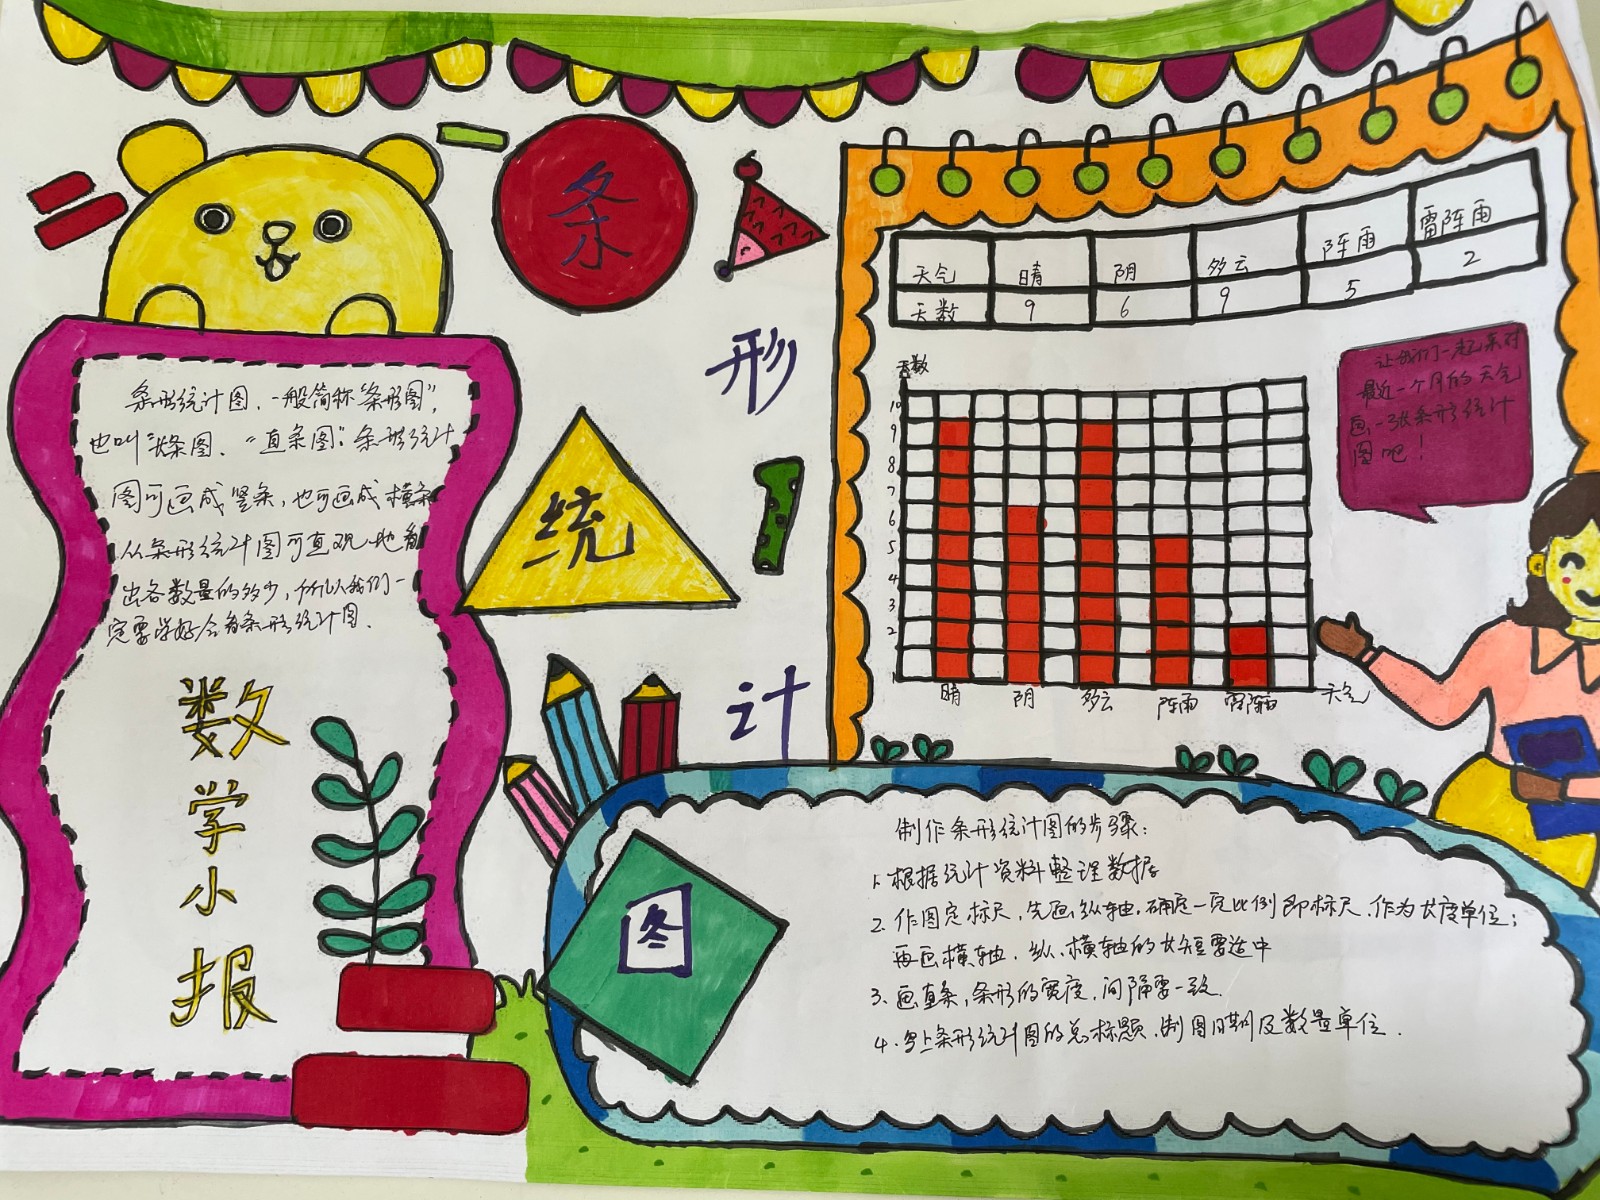 条
形
统
计
图
条形统计图、一般简称"条形图",
也叫"长条图、"直条图"。条形统计
图可画成竖条,也可画成横条
从条形统计图可直观地看
出各数量的多少,所以我们一
定要学好会看条形统计图.
数
学
小
报
天气 晴 阴 多云 阵雨 雷阵雨
天数 9 6 9 5 2
天数
10
9
8
7
6
5
4
3
2
1
晴 阴 多云 阵雨 雷阵雨 天气
让我们一起来对
最近一个月的天气
画一张条形统计
图吧!
制作条形统计图的步骤:
1、根据统计资料整理数据
2、作图定标尺,先画纵轴,确定一定比例即标尺、作为长度单位;
再画横轴、纵、横轴的长短要适中
3、画直条,条形的宽度、间隔要一致.
4.写上条形统计图的总标题、制图日期及数量单位.